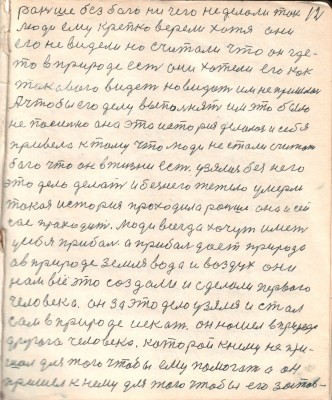 раньше без баго ни чего не делали так 12
люди ему крепко верели хотя они
его не видели но считали что он где-
то в природе есть они хотели его как
токавого видеть но видит им не пришлось
А чтобы его делу выполнят им это было
не посилно она это история деланая и себя
привела к тому что люди не стали считат
баго что он в жизни есть. узялися без него
это дело делат и без него жетело умерли
такая история проходила раньше она и сей
час праходит. Люди всегда хочут имет
у себя прибал а прибал дает природа
а в природе земля вода и воздух они
нам всё это создали и сделали первого
человека. он за это дело узялся и стал
сам в природе искат. он нашел в природе
другога человека. которой к нему не при-
ехал для того чтобы ему помогат а он
пришел к нему для того чтобы его застав-